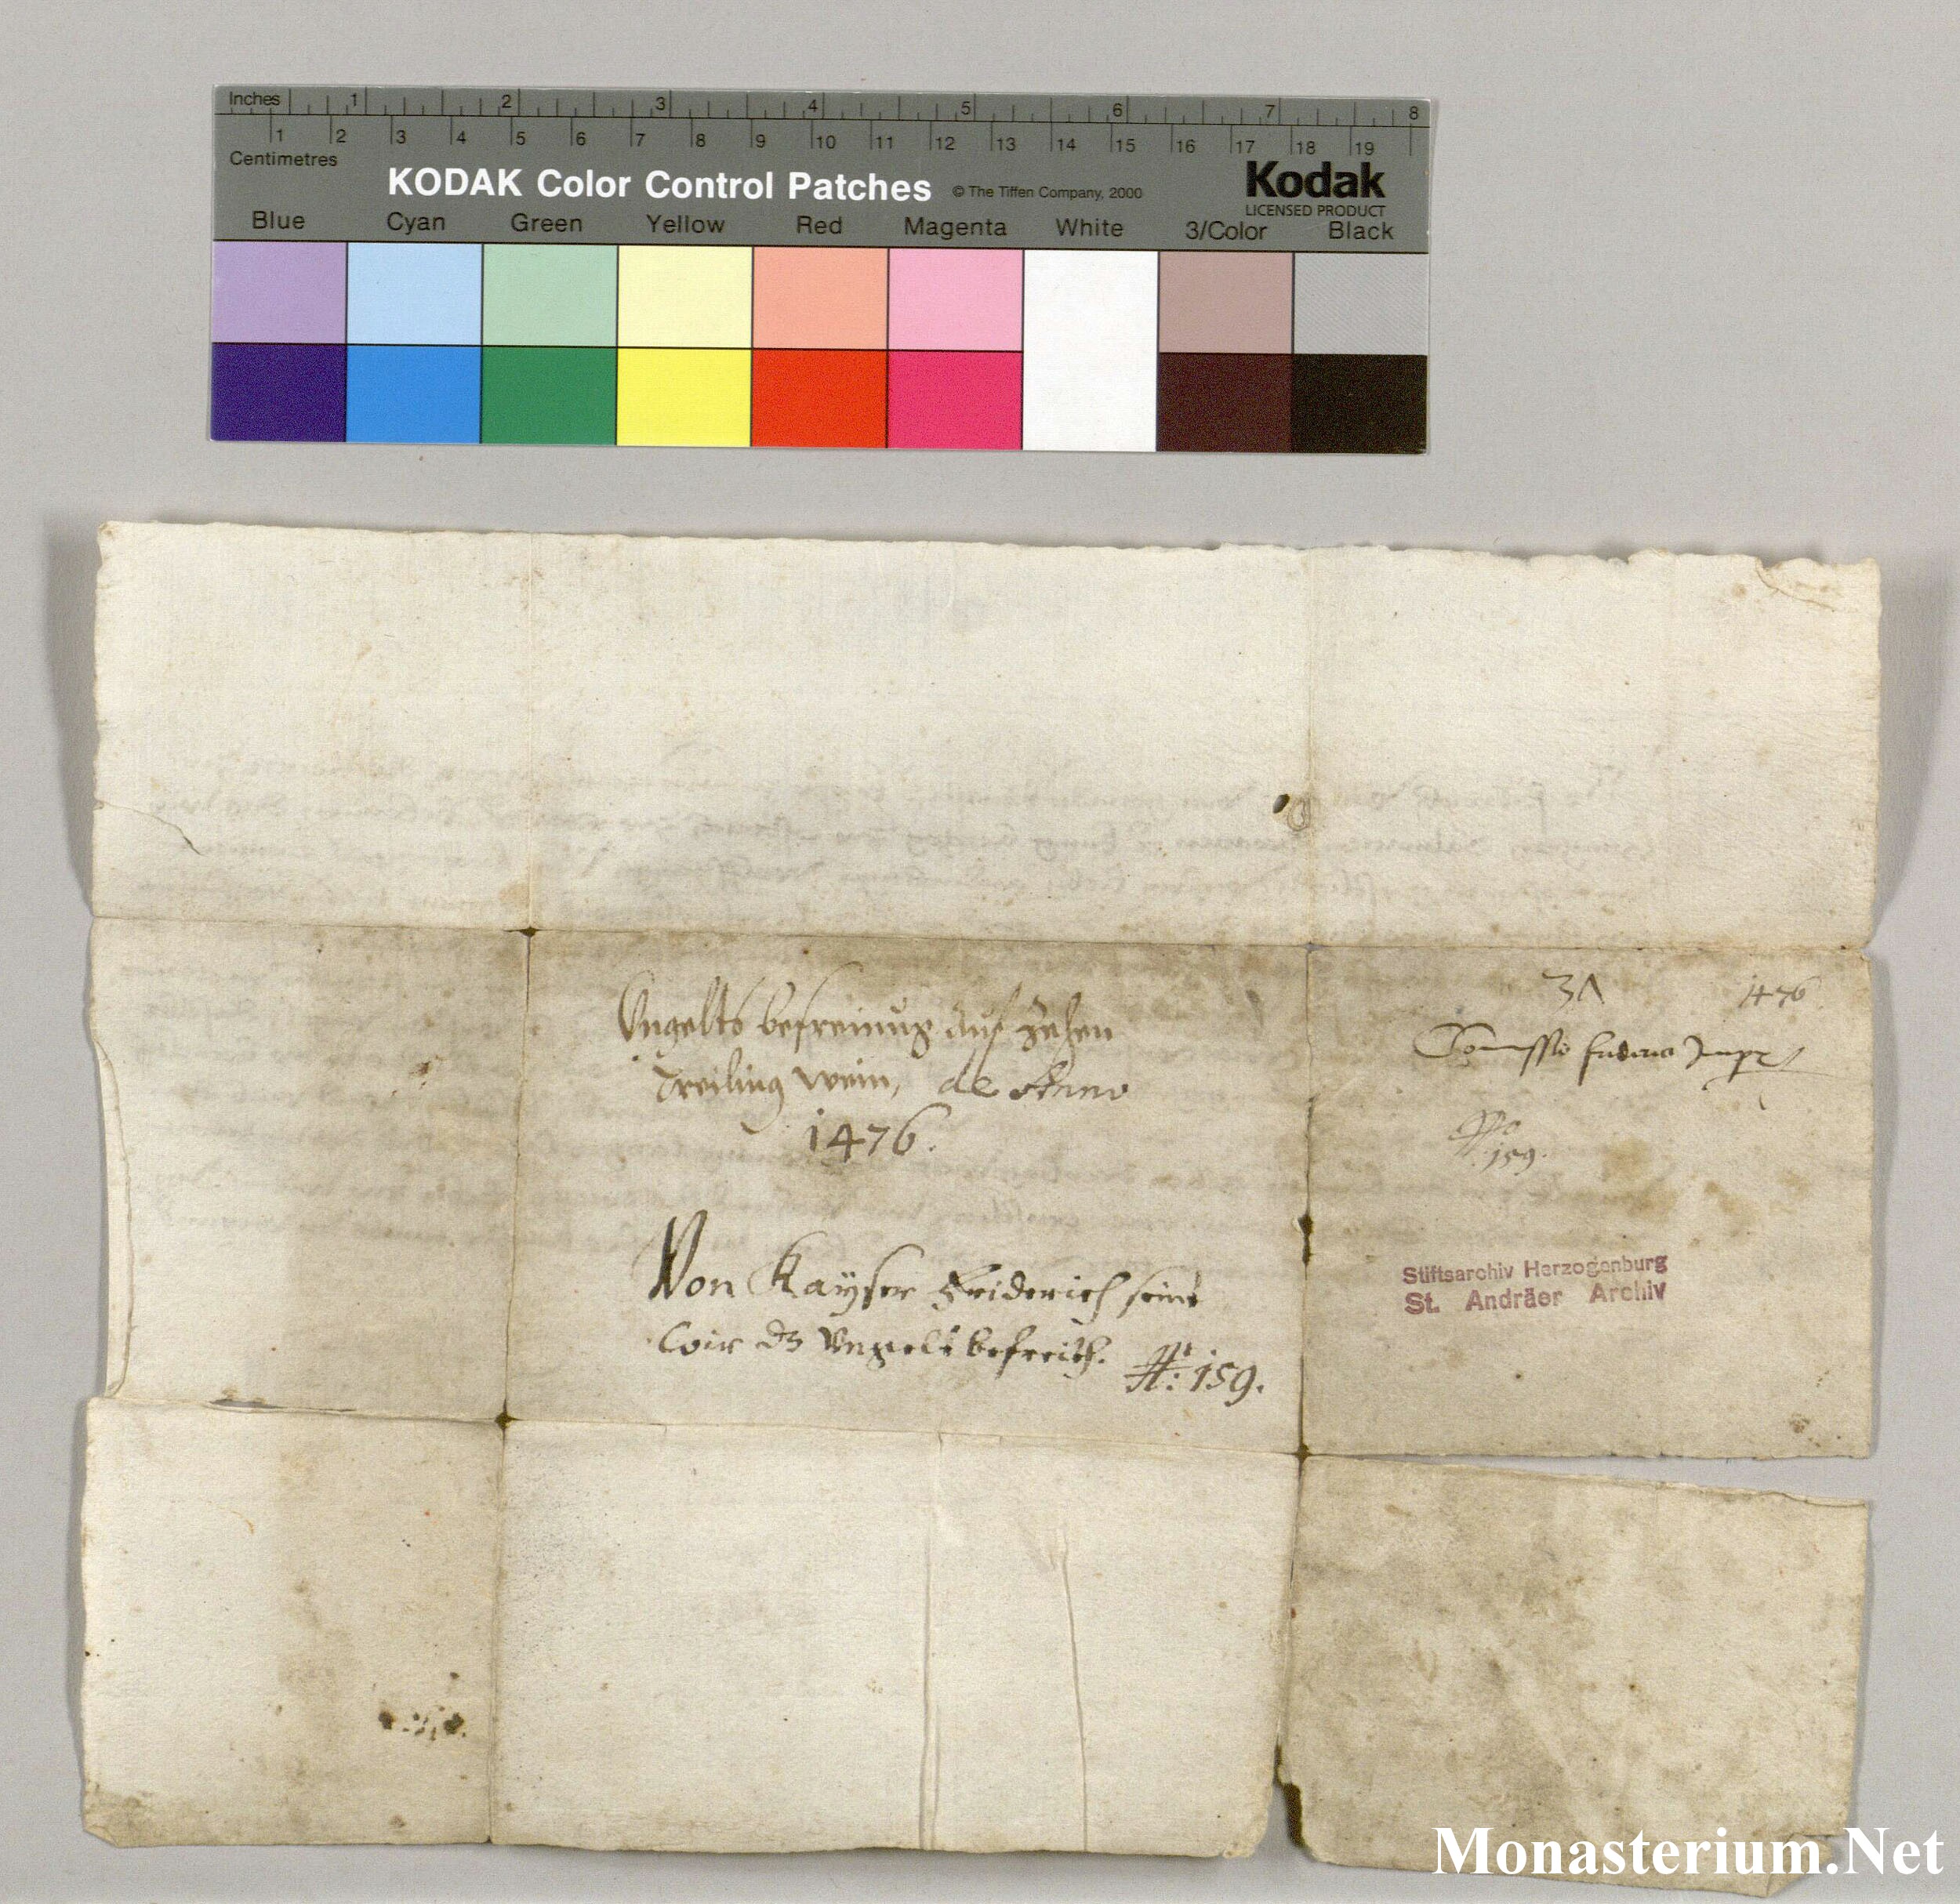 Inches 1 2 3 4 5 6 7 8
1 2 3 4 5 6 7 8 9 10 11 12 13 14 15 16 17 18 19
Centimetres
KODAK Color Control Patches © The Tiffen Company, 2000 Kodak
LICENSED PRODUCT
Blue Cyan Green Yellow Red Magenta White 3/Color Black
Vngelts befreinug auf zehen
Dreiling wein, de Anno
1476.
Von Kayser Friderich seine
dz Vngelt befreith. N: 159.
3Λ 1476
Comissio friderici Impr
No
159.
Stiftsarchiv Herzogenburg
St. Andräer Archiv
Monasterium.Net